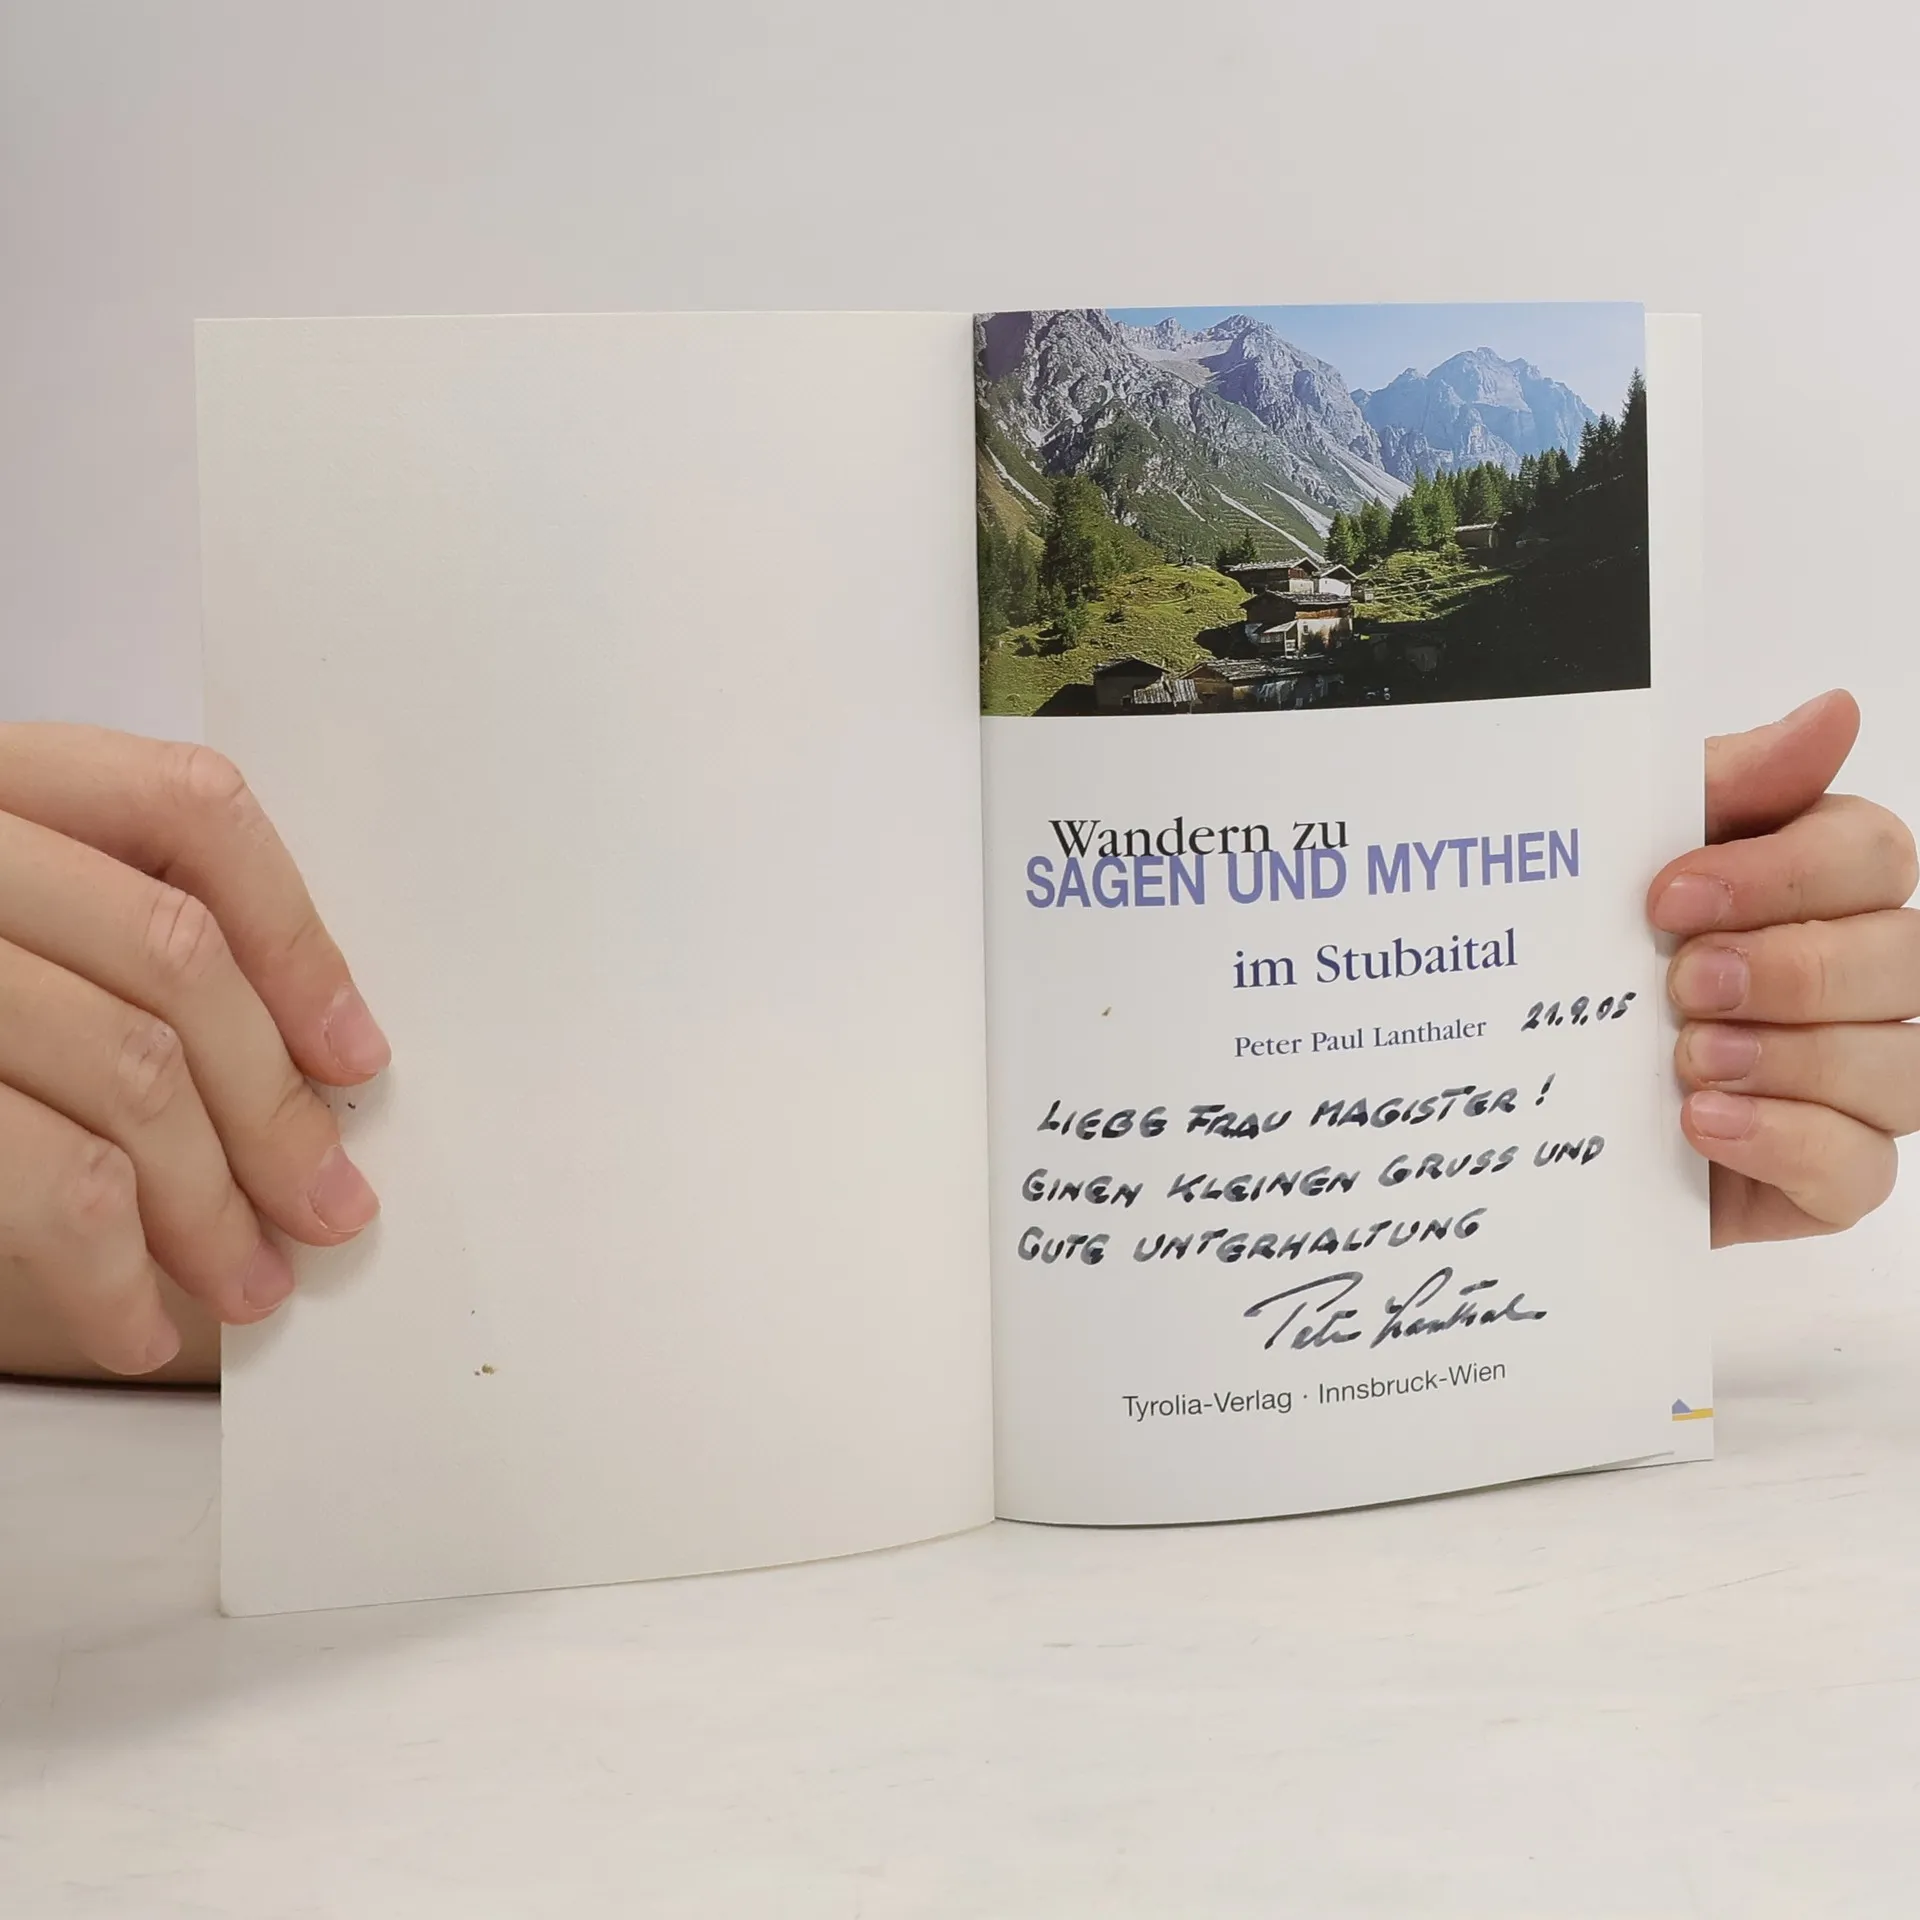 Wandern zu
SAGEN UND MYTHEN
im Stubaital
Peter Paul Lanthaler 21.9.05
LIEBE FRAU MAGISTER!
EINEN KLEINEN GRUSS UND
GUTE UNTERHALTUNG
Peter Lanthaler
Tyrolia-Verlag · Innsbruck-Wien